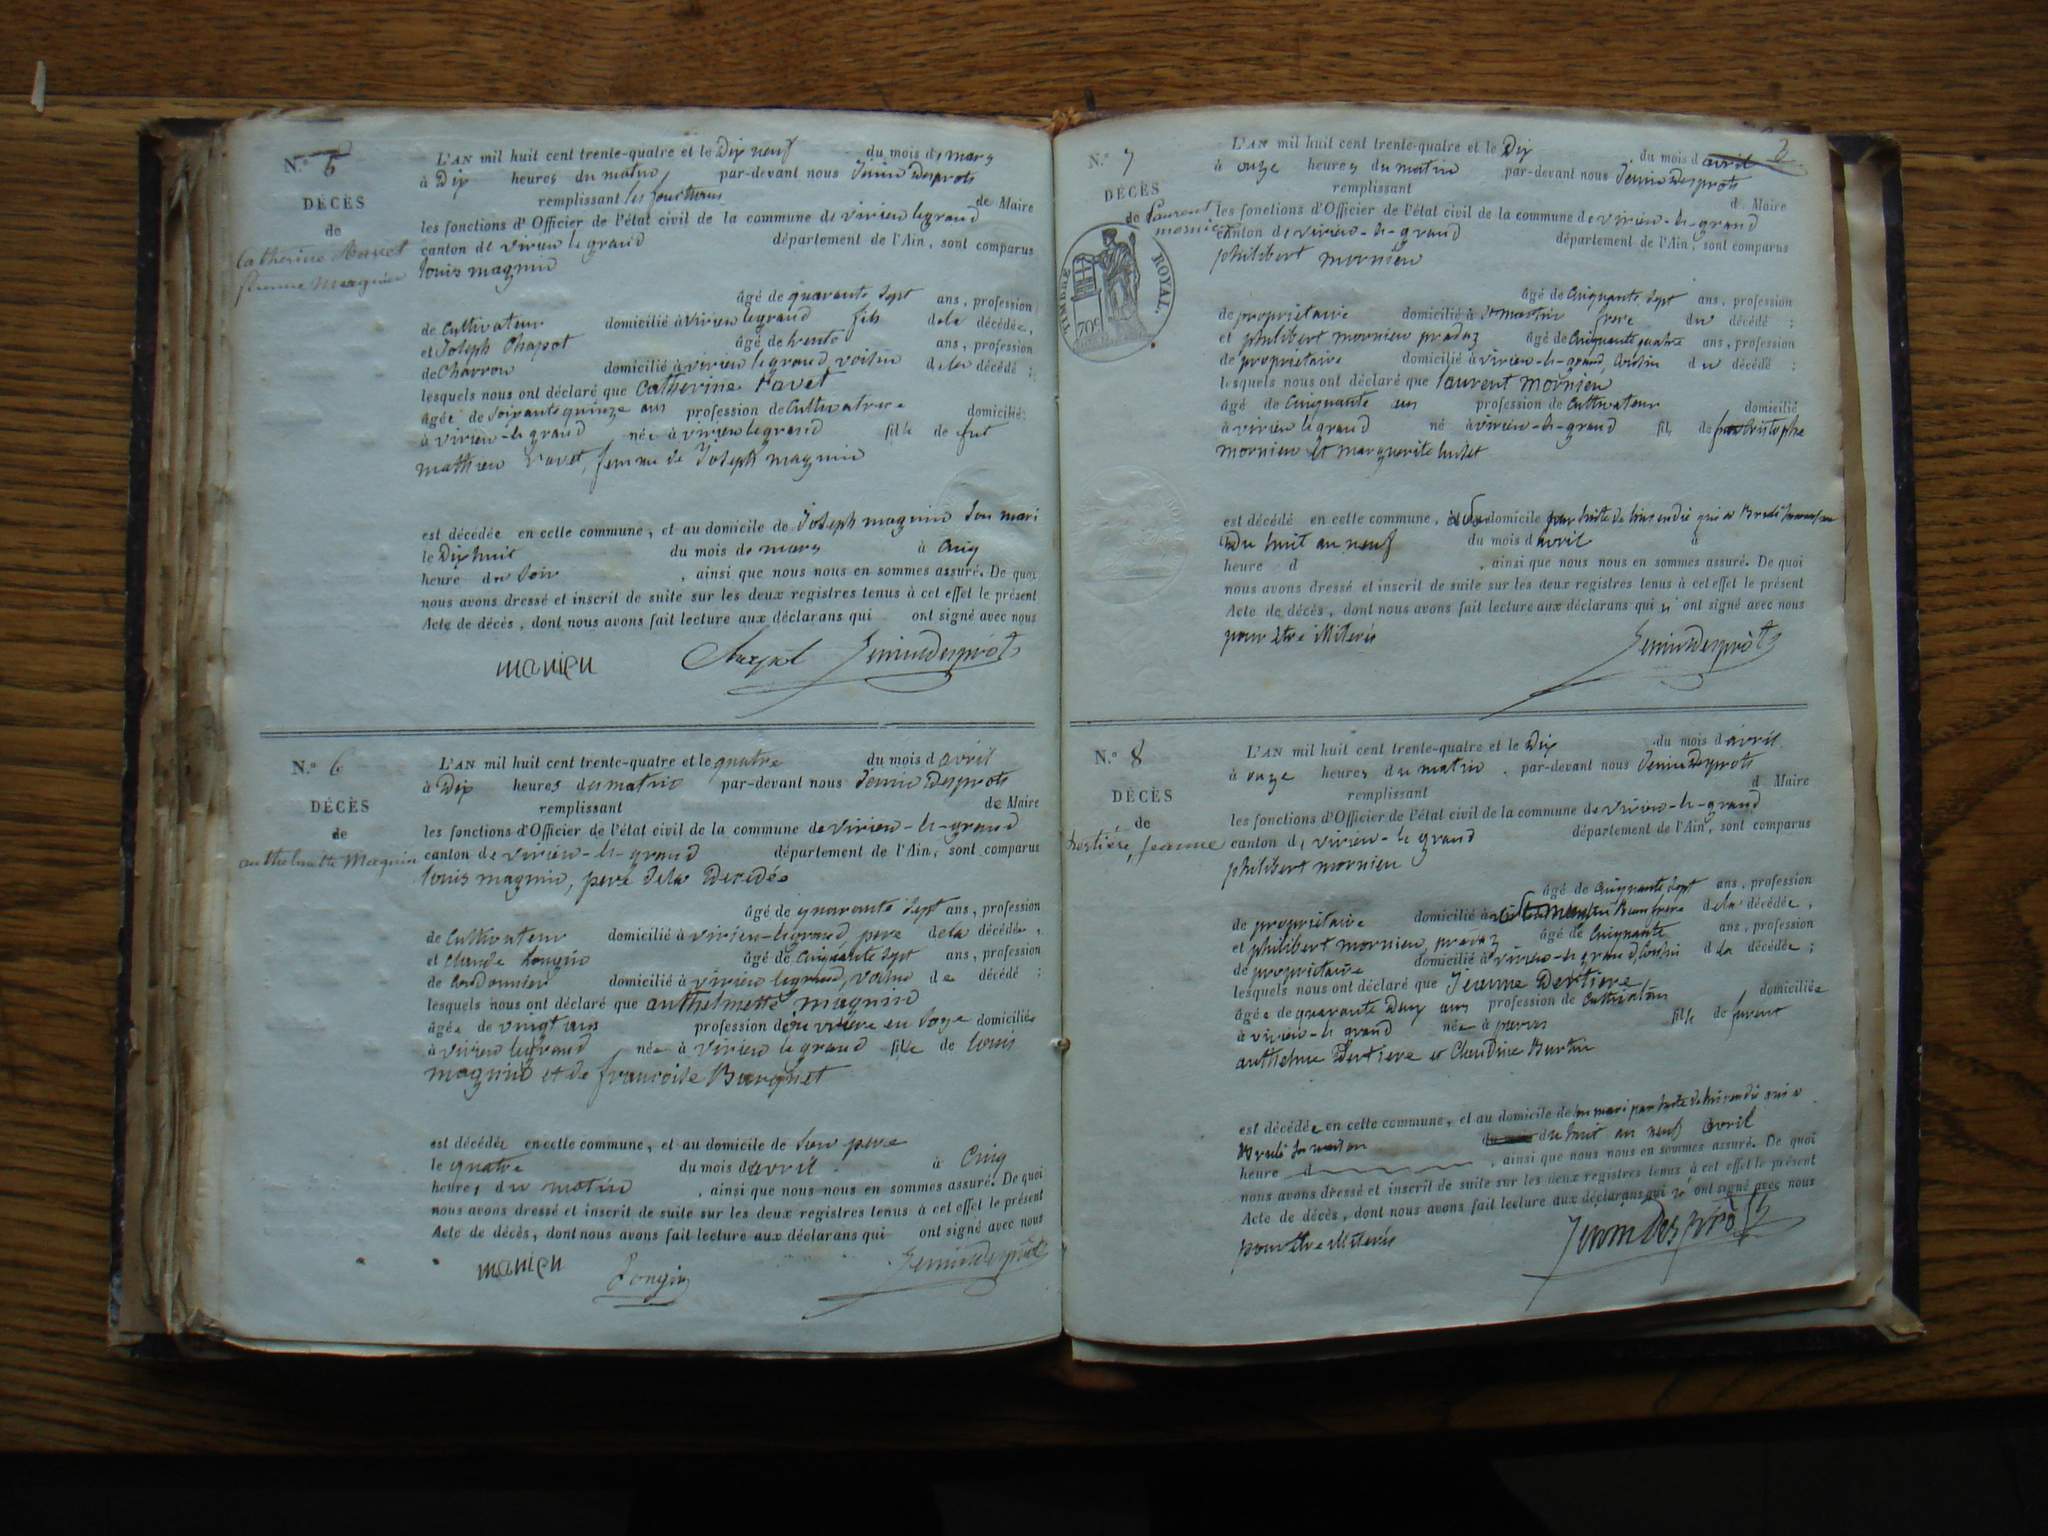 N.º 5
DÉCÈS
de
Catherine Ravet
femme Magnin
L'AN mil huit cent trente-quatre et le Dix neuf du mois de mars
à Dix heures du matin par-devant nous Jenin Desprots
remplissant les fonctions de Maire
les fonctions d'Officier de l'état civil de la commune de virieu legrand
canton de virieu le grand département de l'Ain, sont comparus
louis magnin
âgé de quarante sept ans, profession
de Cultivateur domicilié à virieu legrand fils de la décédée,
et Joseph Chapot âgé de trente ans, profession
de Charron domicilié à virieu legrand, voisin de la décédé ;
lesquels nous ont déclaré que Catherine ravet
âgée de soixante quinze ans profession de Cultivatrice domicilié
à virieu-le grand née à virieu legrand fille de fut
mathieu ravet, femme de Joseph magnin
est décédée en cette commune, et au domicile de Joseph magnin son mari
le Dix huit du mois de mars à Cinq
heure du soir , ainsi que nous nous en sommes assuré. De quoi
nous avons dressé et inscrit de suite sur les deux registres tenus à cet effet le présent
Acte de décès, dont nous avons fait lecture aux déclarans qui ont signé avec nous
manien Chapot Jenin Desprots
N.º 6
DÉCÈS
de
anthelmette Magnin
L'AN mil huit cent trente-quatre et le quatre du mois d avril
à Dix heures du matin par-devant nous Jenin Desprots
remplissant de Maire
les fonctions d'Officier de l'état civil de la commune de virieu-le-grand
canton de virieu-le-grand département de l'Ain, sont comparus
louis magnin, pere dela Decedée
âgé de quarante sept ans, profession
de Cultivateur domicilié à virieu-legrand, pere dela décédée,
et Claude Longin âgé de Cinquante sept ans, profession
de Cordonnier domicilié à virieu legrand, voisin de décédé ;
lesquels nous ont déclaré que anthelmette magnin
âgée de vingt ans profession de ouvriere en soye domiciliée
à virieu legrand née à virieu le grand fille de louis
magnin et de francoise Burquet
est décédée en cette commune, et au domicile de son pere
le quatre du mois d avril à Cinq
heures du matin , ainsi que nous nous en sommes assuré. De quoi
nous avons dressé et inscrit de suite sur les deux registres tenus à cet effet le présent
Acte de décès, dont nous avons fait lecture aux déclarans qui ont signé avec nous
manien Longin Jenin Desprots
3
N.º 7
DÉCÈS
de Laurent
mornieu
TIMBRE ROYAL.
70c
L'AN mil huit cent trente-quatre et le Dix du mois d avril
à onze heures du matin par-devant nous Jenin Desprots
remplissant d. Maire
les fonctions d'Officier de l'état civil de la commune de virieu-le-grand
canton de virieu-le-grand département de l'Ain, sont comparus
philibert mornieu
âgé de Cinquante sept ans, profession
de propriétaire domicilié à st martin frere du décédé ;
et philibert mornieu pradaz âgé de Cinquante quatre ans, profession
de propriétaire domicilié à virieu-le-grand, Cousin du décédé ;
lesquels nous ont déclaré que laurent mornieu
âgé de Cinquante ans profession de Cultivateur domicilié
à virieu legrand né à virieu-le-grand fils de Cristophe
mornieu et marguerite
est décédé en cette commune, à son domicile par suite de lincendie qui a Brulé sa maison
Du huit au neuf du mois d avril à
heure d , ainsi que nous nous en sommes assuré. De quoi
nous avons dressé et inscrit de suite sur les deux registres tenus à cet effet le présent
Acte de décès, dont nous avons fait lecture aux déclarans qui n' ont signé avec nous
pour être illiterés Jenin Desprots
N.º 8
DÉCÈS
de
Dertière, Jeanne
L'AN mil huit cent trente-quatre et le Dix du mois d avril
à onze heures du matin par-devant nous Jenin Desprots
remplissant d Maire
les fonctions d'Officier de l'état civil de la commune de virieu-le-grand
canton de virieu-le grand département de l'Ain, sont comparus
philibert mornieu
âgé de Cinquante sept ans, profession
de propriétaire domicilié à st martin Beaufrere dela décédée,
et philibert mornieu, pradaz âgé de Cinquante ans, profession
de propriétaire domicilié à virieu-le grand, Cousin d la décédée ;
lesquels nous ont déclaré que Jeanne Dertiere
âgée de quarante Deux ans profession de domiciliée
à virieu-le grand née à fille de furent
anthelme Dertiere et Claudine Burtin
est décédée en cette commune, et au domicile de son mari par suite de lincendie qui a
Brulé sa maison du huit au neuf avril
heure d , ainsi que nous nous en sommes assuré. De quoi
nous avons dressé et inscrit de suite sur les deux registres tenus à cet effet le présent
Acte de décès, dont nous avons fait lecture aux déclarans qui n' ont signé avec nous
pour être illiterés Jenin Desprots